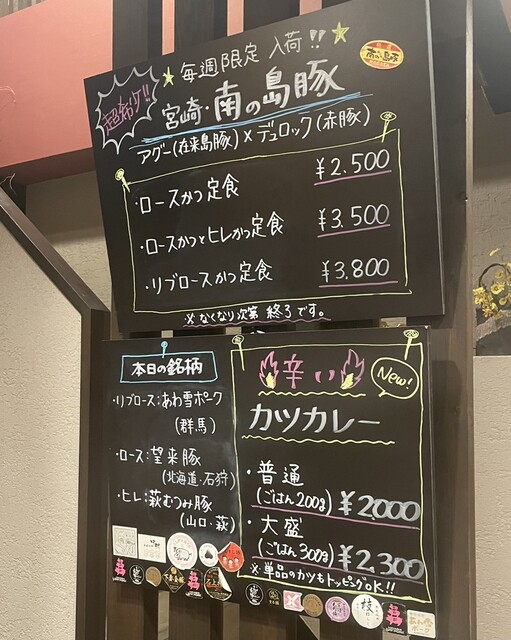 毎週限定 入荷!!
超希少!!
宮崎・南の島豚
アグー(在来島豚)×デュロック(赤豚)
・ロースかつ定食 ¥2.500
・ロースかつとヒレかつ定食 ¥3.500
・リブロースかつ定食 ¥3.800
※なくなり次第 終了です。
本日の銘柄
・リブロース:あわ雪ポーク
(群馬)
・ロース:望来豚
(北海道・石狩)
・ヒレ:萩むつみ豚
(山口・萩)
辛い
New!
カツカレー
・普通
(ごはん200g) ¥2,000
・大盛
(ごはん300g) ¥2,300
※単品のカツもトッピングOK!!